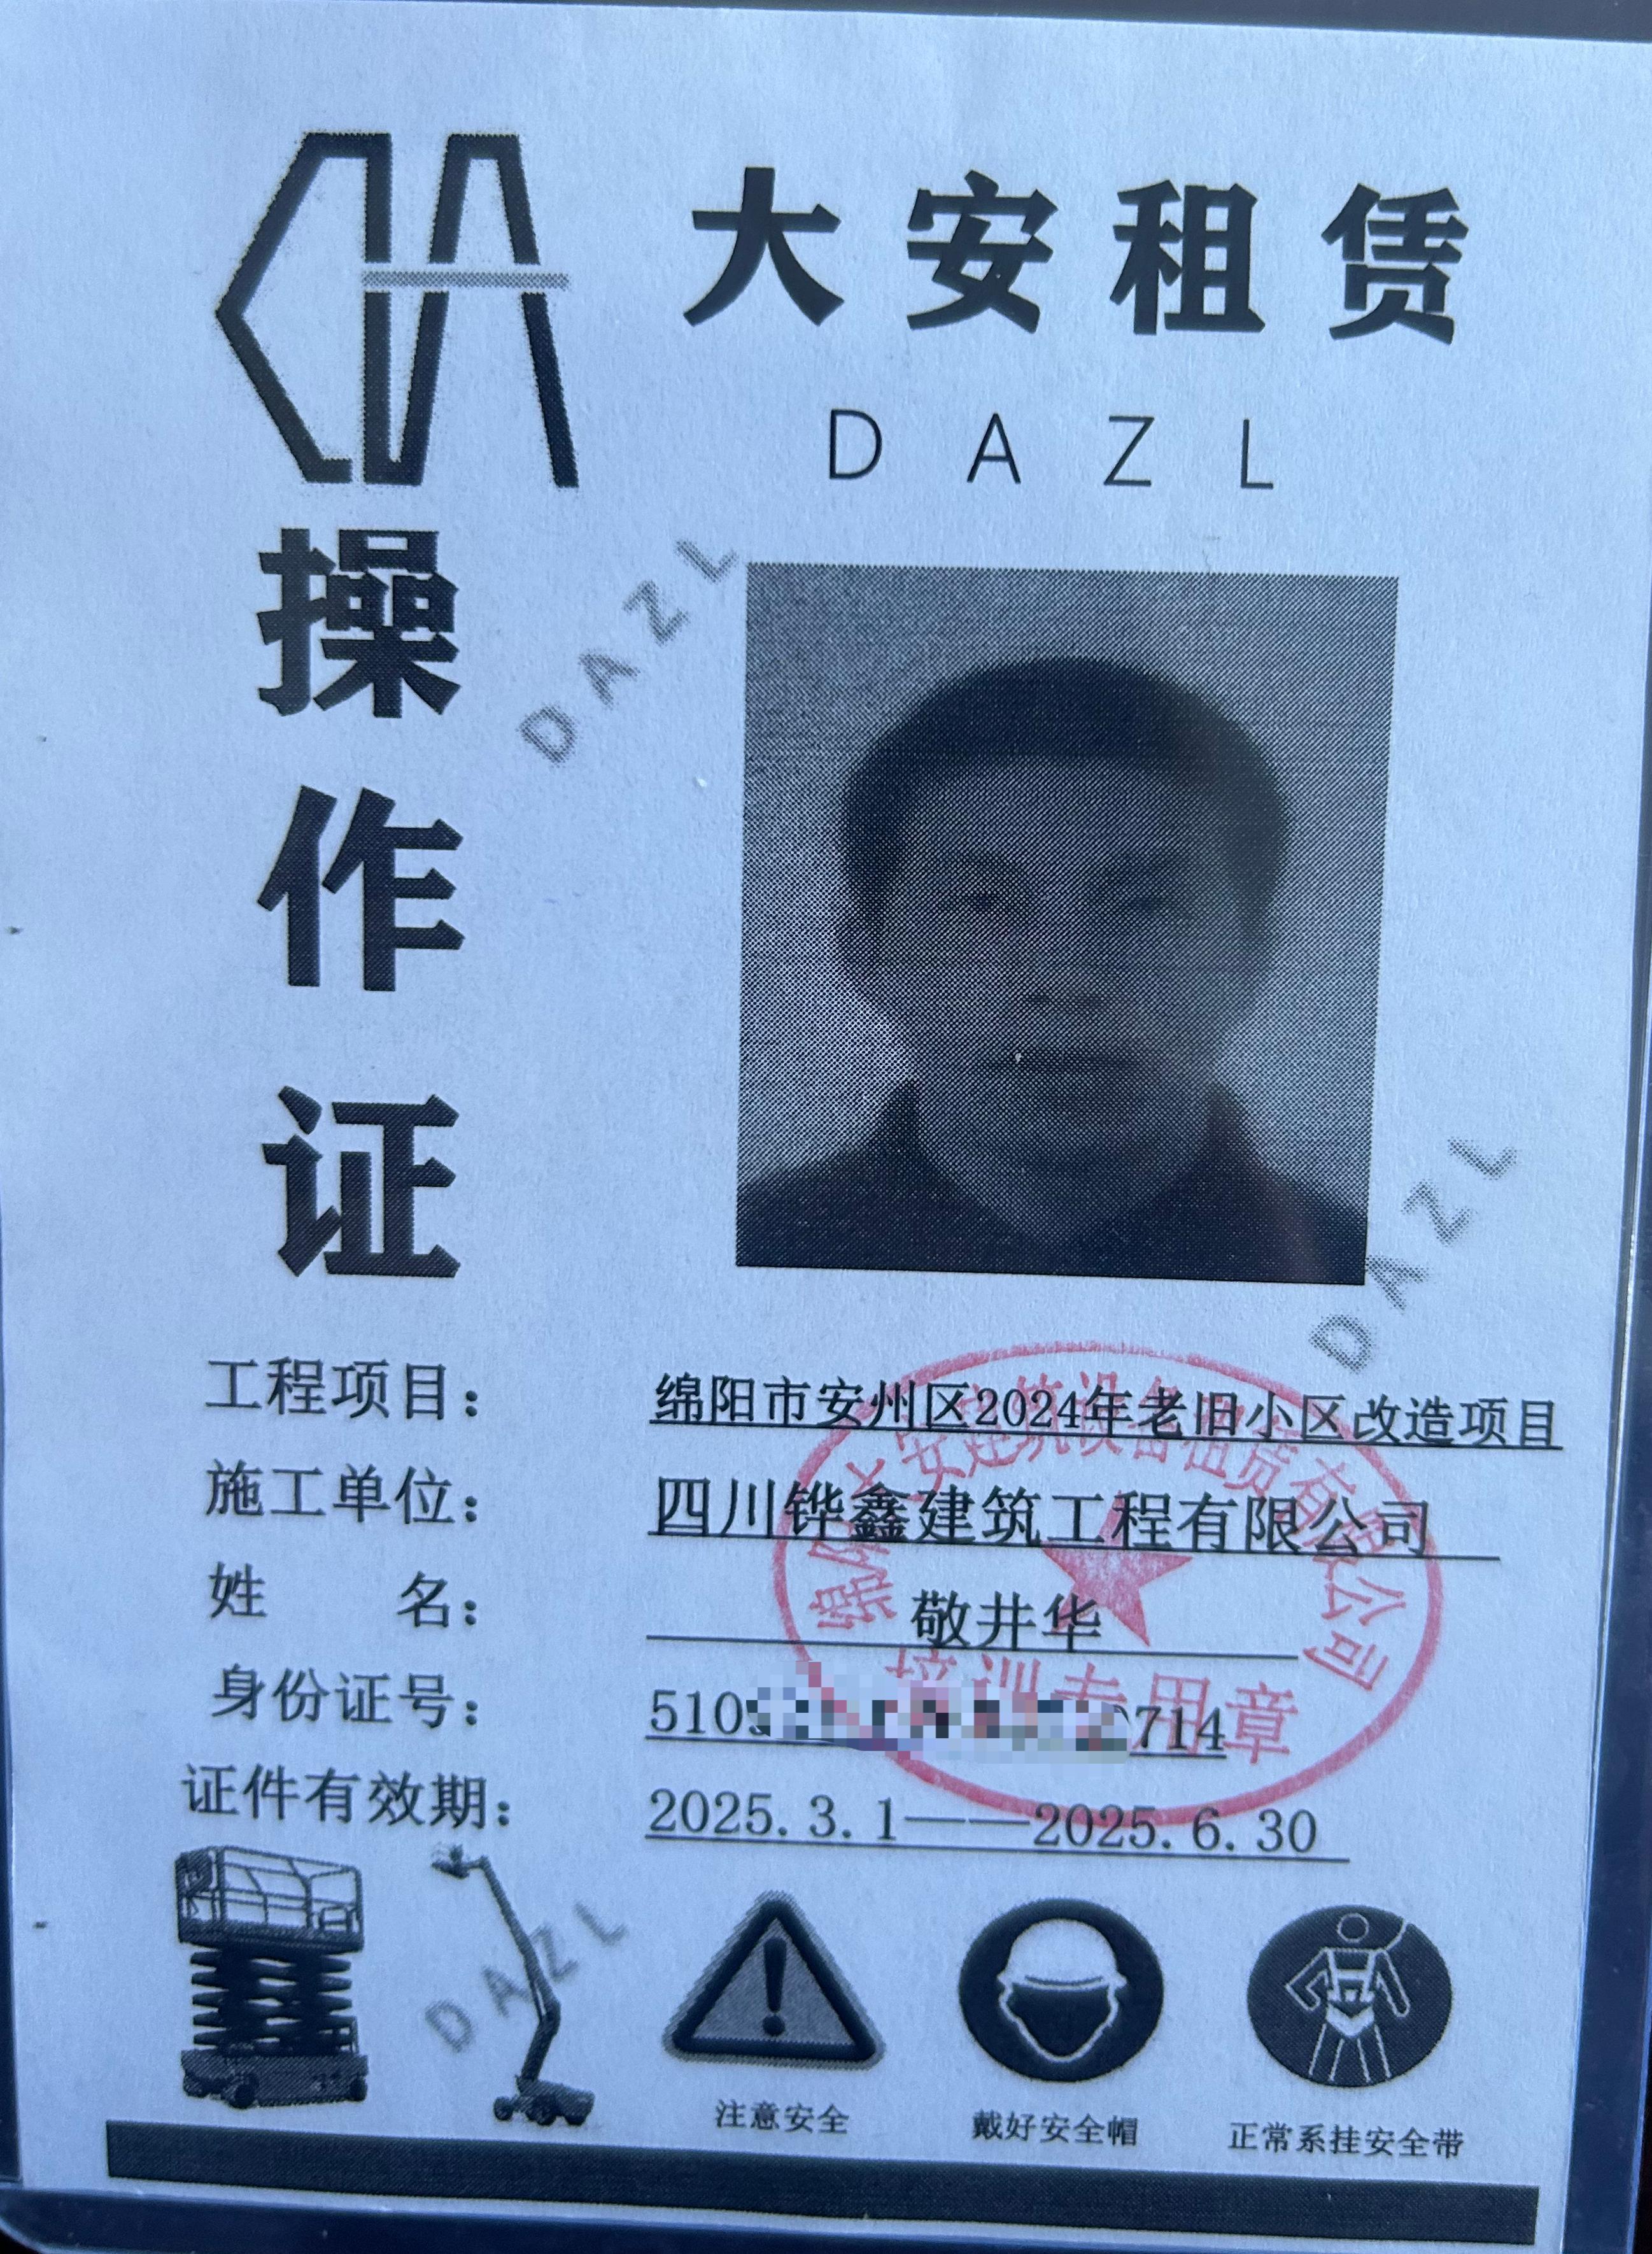 大安租赁
DAZL
操作证
DAZL
DAZL
工程项目：绵阳市安州区2024年老旧小区改造项目
施工单位：四川铧鑫建筑工程有限公司
姓名：敬井华
身份证号：510 0714
证件有效期：2025.3.1——2025.6.30
绵阳大安建筑设备租赁有限公司
培训专用章
DAZL
注意安全
戴好安全帽
正常系挂安全带